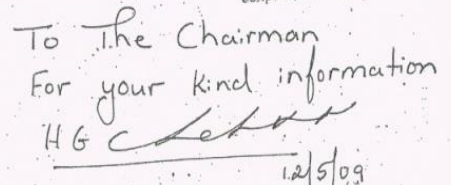 To The Chairman
For your kind information
H G C
12/5/09